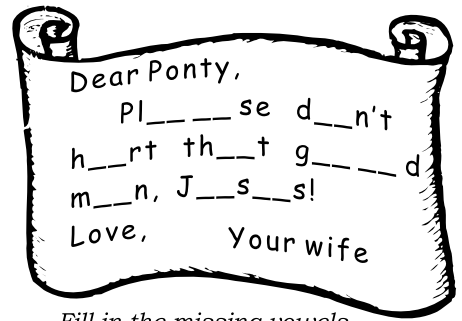 Dear Ponty,
Pl__ __se d__n't
h__rt th__t g__ __d
m__n, J__s__s!
Love, Your wife
Fill in the missing vowels